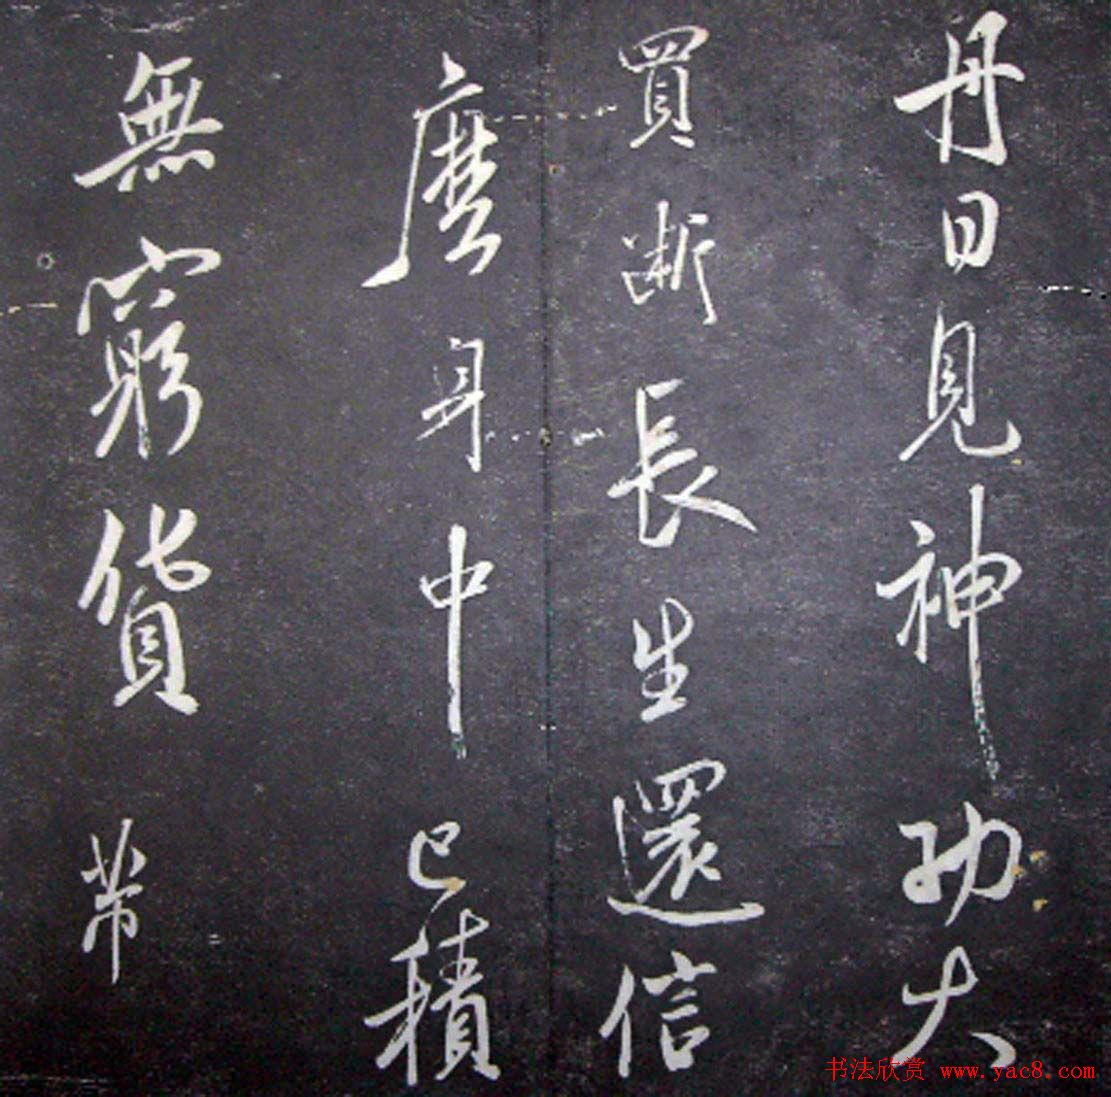 丹日見神功大
買斷長生還信
麼身中已積
無窮貨常
书法欣赏 www.yac8.com